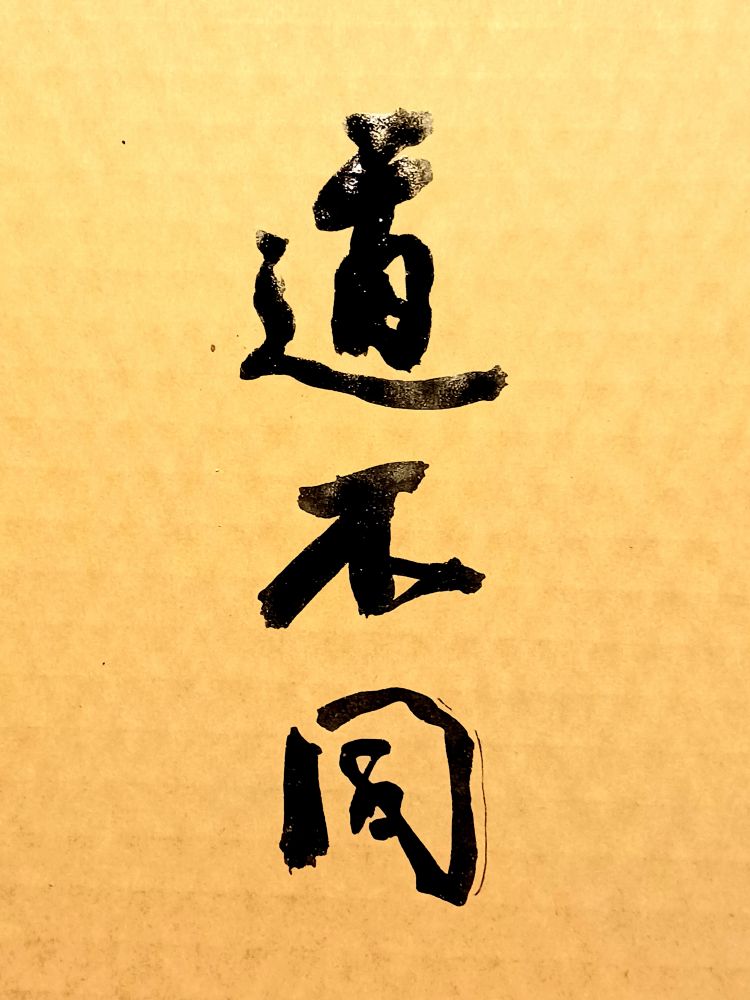 道不同